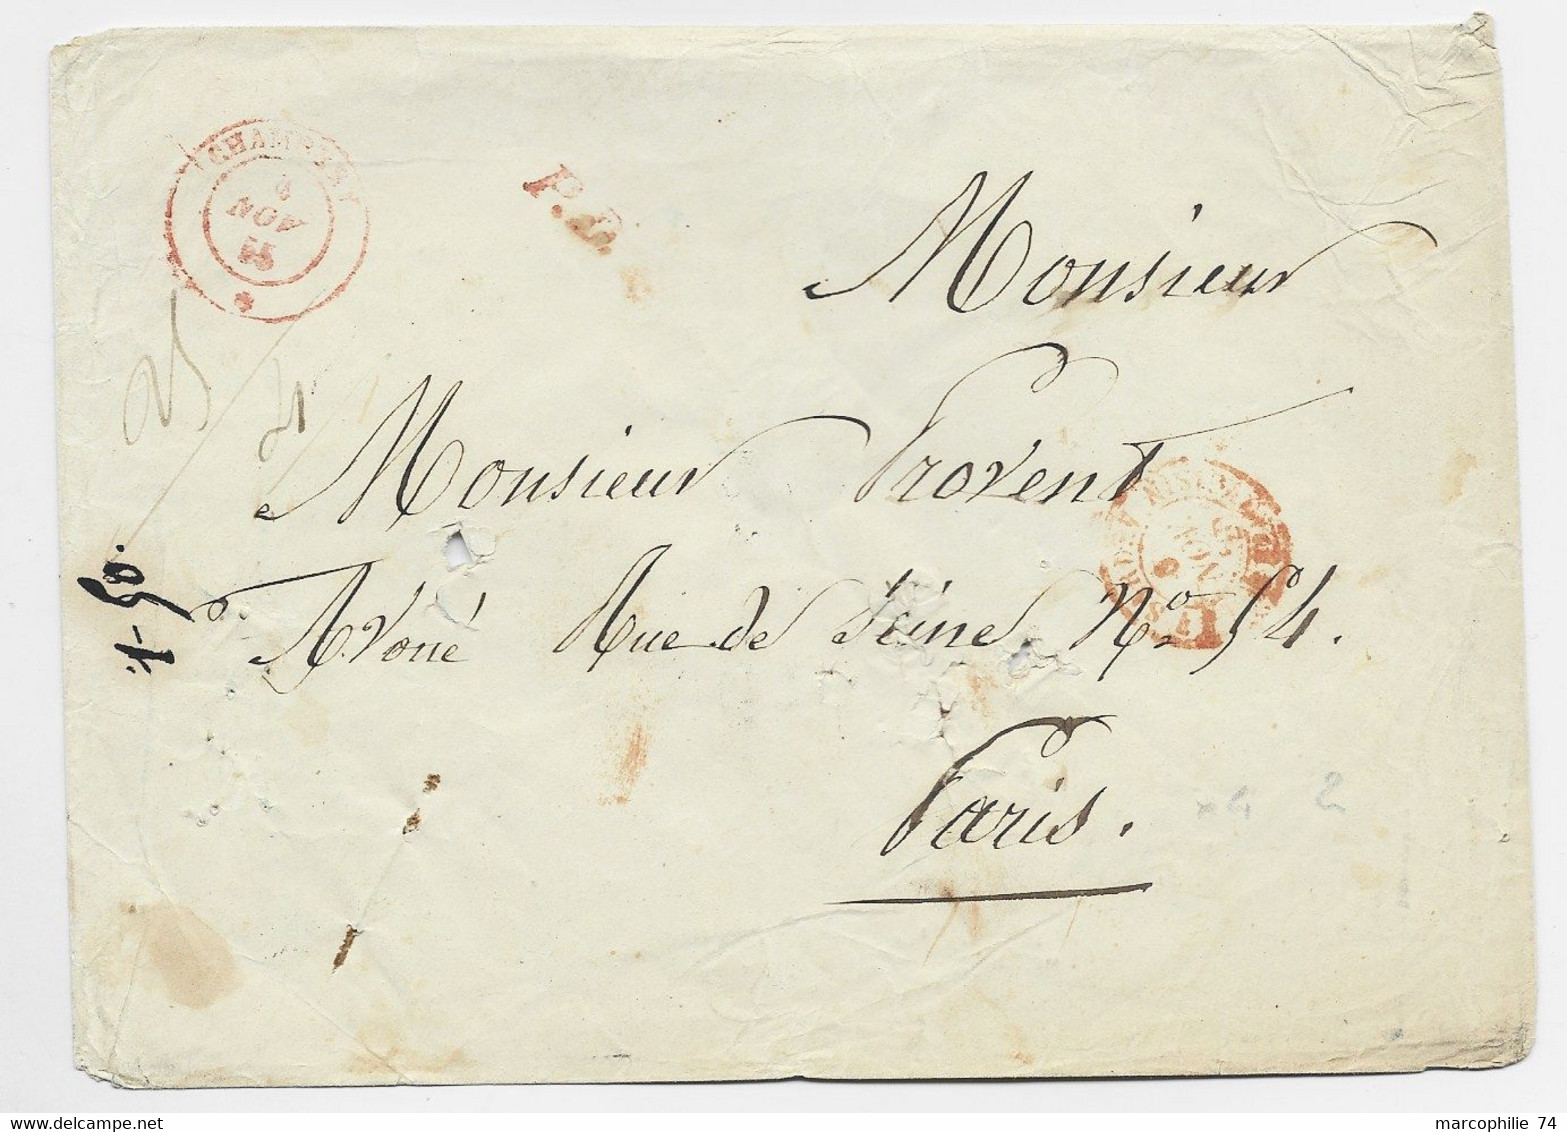 NOV
55
P.D.
Monsieur
Monsieur Provent
Avoué Rue de Seine No 54.
Paris.
25
7-50.
marcophilie 74